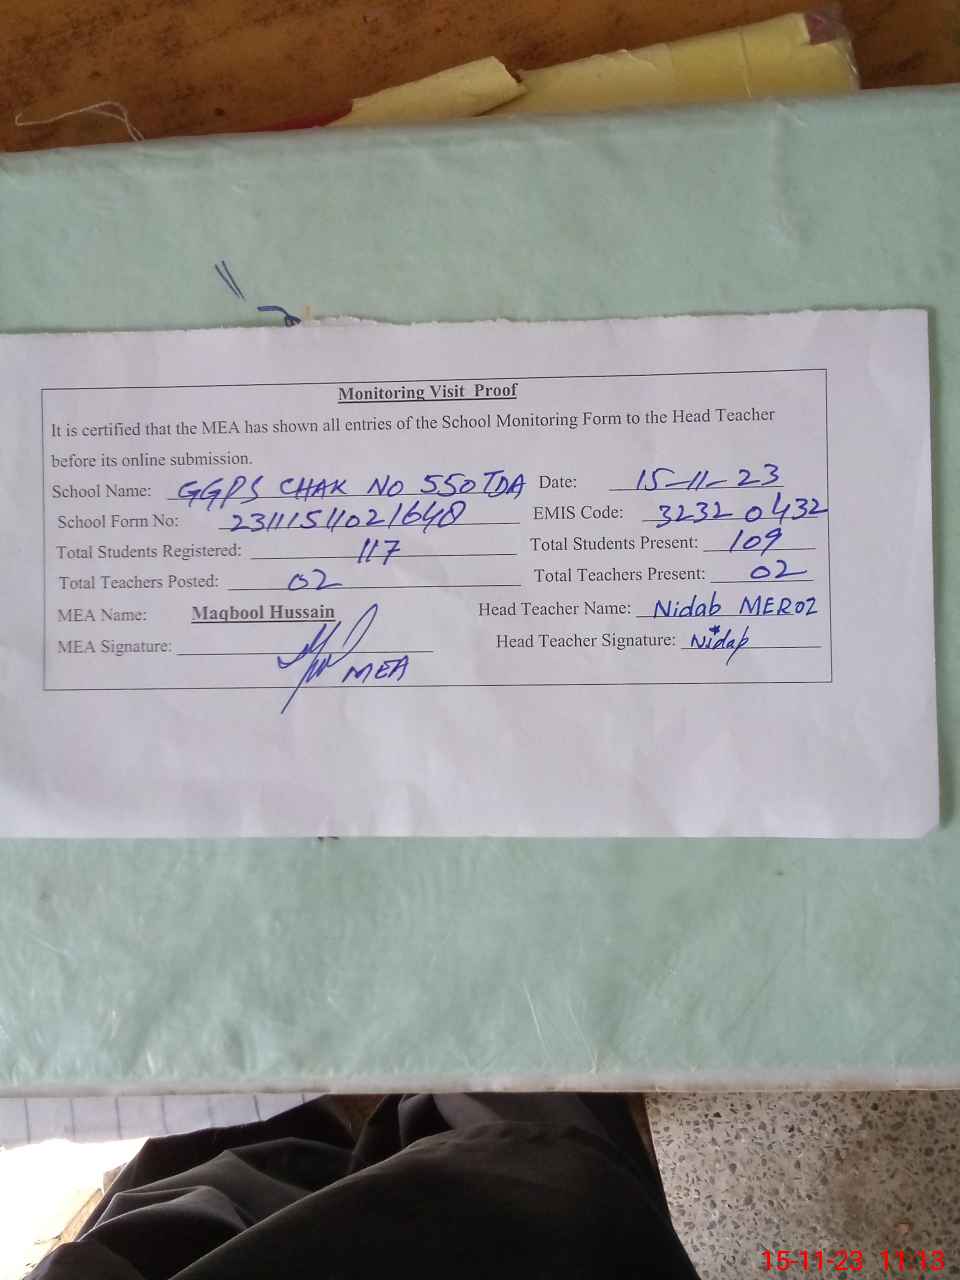 Monitoring Visit Proof
It is certified that the MEA has shown all entries of the School Monitoring Form to the Head Teacher
before its online submission.
School Name: GGPS CHAK NO 550TDA Date: 15-11-23
School Form No: 23111511021648 EMIS Code: 32320432
Total Students Registered: 117 Total Students Present: 109
Total Teachers Posted: 02 Total Teachers Present: 02
MEA Name: Maqbool Hussain Head Teacher Name: Nidab MEROZ
MEA Signature: MEA Head Teacher Signature: Nidab
15-11-23 11:13